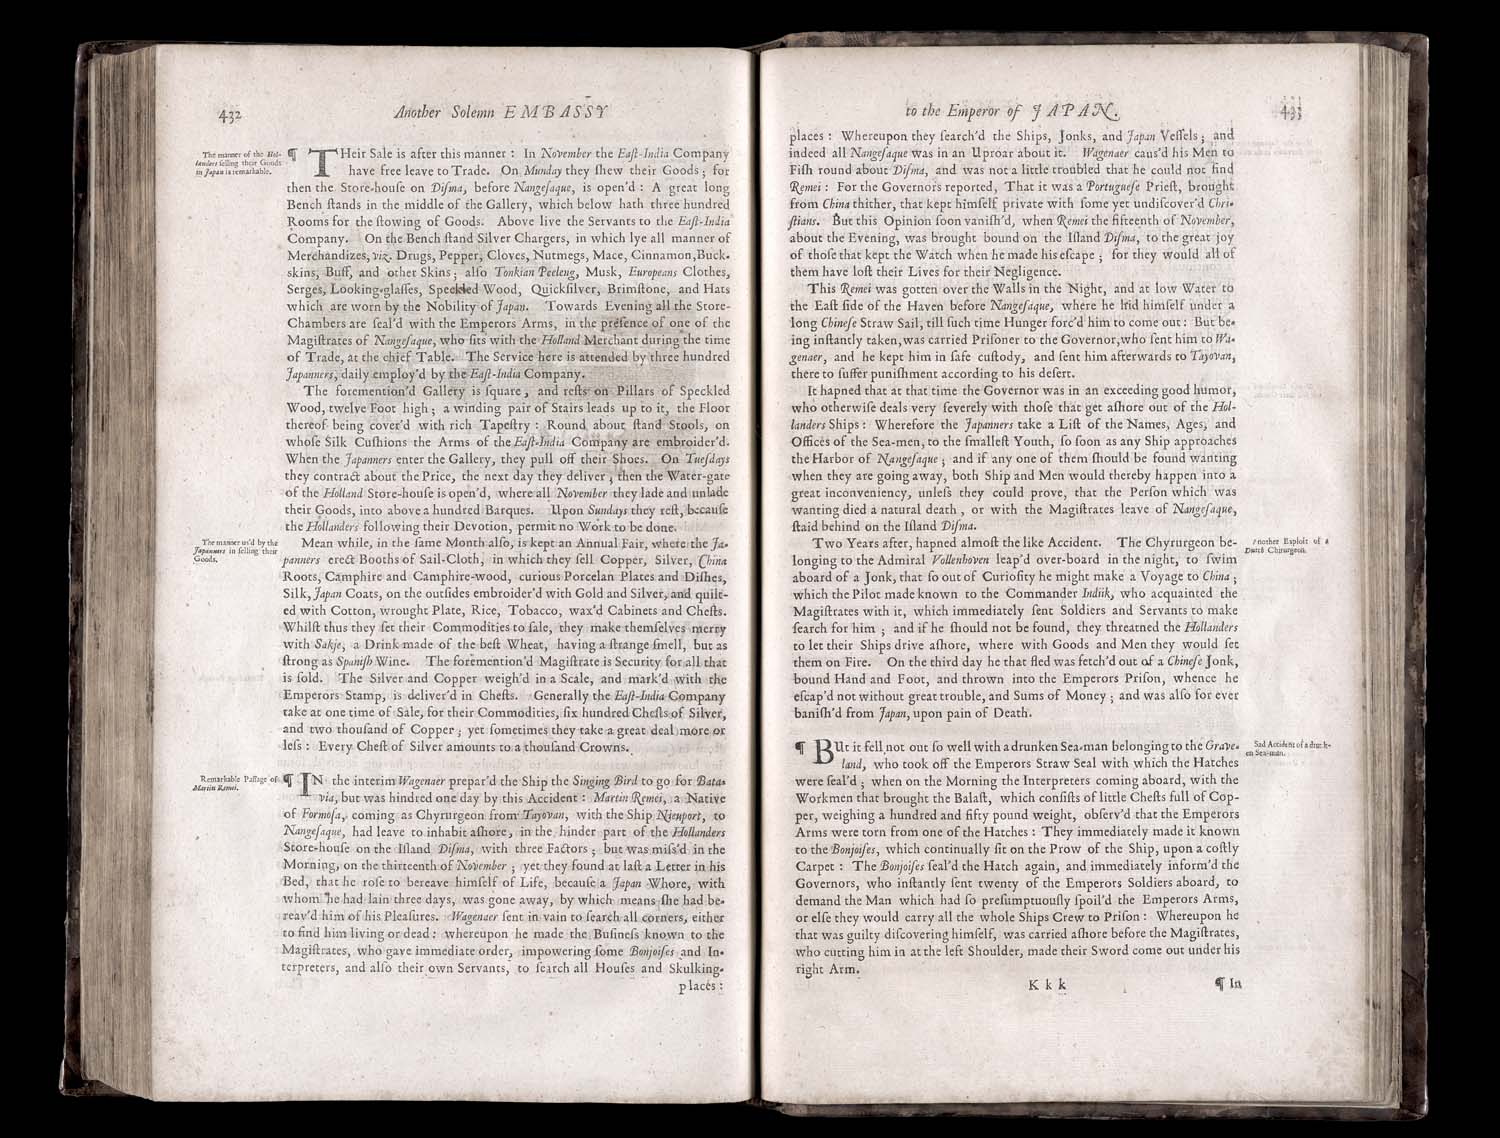 432
Another Solemn EMBASSY
The manner of the Hol-
landers selling their Goods
in Japan is remarkable.
¶ THeir Sale is after this manner : In November the Eaſt-India Company
have free leave to Trade. On Munday they ſhew their Goods ; for
then the Store-houſe on Diſma, before Nangeſaque, is open'd : A great long
Bench ſtands in the middle of the Gallery, which below hath three hundred
Rooms for the ſtowing of Goods. Above live the Servants to the Eaſt-India
Company. On the Bench ſtand Silver Chargers, in which lye all manner of
Merchandizes, viz. Drugs, Pepper, Cloves, Nutmegs, Mace, Cinnamon, Buck-
skins, Buff, and other Skins ; alſo Tonkian Peeleng, Musk, Europeans Clothes,
Serges, Looking-glaſſes, Speckled Wood, Quickſilver, Brimſtone, and Hats
which are worn by the Nobility of Japan. Towards Evening all the Store-
Chambers are ſeal'd with the Emperors Arms, in the preſence of one of the
Magiſtrates of Nangeſaque, who ſits with the Holland Merchant during the time
of Trade, at the chief Table. The Service here is attended by three hundred
Japanners, daily employ'd by the Eaſt-India Company.
The foremention'd Gallery is ſquare, and reſts on Pillars of Speckled
Wood, twelve Foot high ; a winding pair of Stairs leads up to it, the Floor
thereof being cover'd with rich Tapeſtry : Round about ſtand Stools, on
whoſe Silk Cuſhions the Arms of the Eaſt-India Company are embroider'd.
When the Japanners enter the Gallery, they pull off their Shoes. On Tueſdays
they contract about the Price, the next day they deliver ; then the Water-gate
of the Holland Store-houſe is open'd, where all November they lade and unlade
their Goods, into above a hundred Barques. Upon Sundays they reſt, becauſe
the Hollanders following their Devotion, permit no Work to be done.
The manner us'd by the
Japanners in ſelling their
Goods.
Mean while, in the ſame Month alſo, is kept an Annual Fair, where the Ja-
panners erect Booths of Sail-Cloth, in which they ſell Copper, Silver, China
Roots, Camphire and Camphire-wood, curious Porcelan Plates and Diſhes,
Silk, Japan Coats, on the outſides embroider'd with Gold and Silver, and quilt-
ed with Cotton, wrought Plate, Rice, Tobacco, wax'd Cabinets and Cheſts.
Whilſt thus they ſet their Commodities to ſale, they make themſelves merry
with Sakje, a Drink made of the beſt Wheat, having a ſtrange ſmell, but as
ſtrong as Spaniſh Wine. The foremention'd Magiſtrate is Security for all that
is ſold. The Silver and Copper weigh'd in a Scale, and mark'd with the
Emperors Stamp, is deliver'd in Cheſts. Generally the Eaſt-India Company
take at one time of Sale, for their Commodities, ſix hundred Cheſts of Silver,
and two thouſand of Copper ; yet ſometimes they take a great deal more or
leſs : Every Cheſt of Silver amounts to a thouſand Crowns.
Remarkable Paſſage of
Martin Remei.
¶ IN the interim Wagenaer prepar'd the Ship the Singing Bird to go for Bata-
via, but was hindred one day by this Accident : Martin Remei, a Native
of Formoſa, coming as Chyrurgeon from Tayovan, with the Ship Nieuport, to
Nangeſaque, had leave to inhabit aſhore, in the hinder part of the Hollanders
Store-houſe on the Iſland Diſma, with three Factors ; but was miſs'd in the
Morning, on the thirteenth of November ; yet they found at laſt a Letter in his
Bed, that he roſe to bereave himſelf of Life, becauſe a Japan Whore, with
whom he had lain three days, was gone away, by which means ſhe had be-
reav'd him of his Pleaſures. Wagenaer ſent in vain to ſearch all corners, either
to find him living or dead : whereupon he made the Buſineſs known to the
Magiſtrates, who gave immediate order, impowering ſome Bonjoiſes and In-
terpreters, and alſo their own Servants, to ſearch all Houſes and Skulking-
places :
to the Emperor of JAPAN.
433
places : Whereupon they ſearch'd the Ships, Jonks, and Japan Veſſels ; and
indeed all Nangeſaque was in an Uproar about it. Wagenaer caus'd his Men to
Fiſh round about Diſma, and was not a little troubled that he could not find
Remei : For the Governors reported, That it was a Portugueſe Prieſt, brought
from China thither, that kept himſelf private with ſome yet undiſcover'd Chri-
ſtians. But this Opinion ſoon vaniſh'd, when Remei the fifteenth of November,
about the Evening, was brought bound on the Iſland Diſma, to the great joy
of thoſe that kept the Watch when he made his eſcape ; for they would all of
them have loſt their Lives for their Negligence.
This Remei was gotten over the Walls in the Night, and at low Water to
the Eaſt ſide of the Haven before Nangeſaque, where he hid himſelf under a
long Chineſe Straw Sail, till ſuch time Hunger forc'd him to come out : But be-
ing inſtantly taken, was carried Priſoner to the Governor, who ſent him to Wa-
genaer, and he kept him in ſafe cuſtody, and ſent him afterwards to Tayovan,
there to ſuffer puniſhment according to his deſert.
It hapned that at that time the Governor was in an exceeding good humor,
who otherwiſe deals very ſeverely with thoſe that get aſhore out of the Hol-
landers Ships : Wherefore the Japanners take a Liſt of the Names, Ages, and
Offices of the Sea-men, to the ſmalleſt Youth, ſo ſoon as any Ship approaches
the Harbor of Nangeſaque ; and if any one of them ſhould be found wanting
when they are going away, both Ship and Men would thereby happen into a
great inconveniency, unleſs they could prove, that the Perſon which was
wanting died a natural death, or with the Magiſtrates leave of Nangeſaque,
ſtaid behind on the Iſland Diſma.
Another Exploit of a
Dutch Chirurgeon.
Two Years after, hapned almoſt the like Accident. The Chyrurgeon be-
longing to the Admiral Vollenhoven leap'd over-board in the night, to ſwim
aboard of a Jonk, that ſo out of Curioſity he might make a Voyage to China ;
which the Pilot made known to the Commander Indiik, who acquainted the
Magiſtrates with it, which immediately ſent Soldiers and Servants to make
ſearch for him ; and if he ſhould not be found, they threatned the Hollanders
to let their Ships drive aſhore, where with Goods and Men they would ſet
them on Fire. On the third day he that fled was fetch'd out of a Chineſe Jonk,
bound Hand and Foot, and thrown into the Emperors Priſon, whence he
eſcap'd not without great trouble, and Sums of Money ; and was alſo for ever
baniſh'd from Japan, upon pain of Death.
Sad Accident of a drunk-
en Sea-man.
¶ BUt it fell not out ſo well with a drunken Sea-man belonging to the Grave-
land, who took off the Emperors Straw Seal with which the Hatches
were ſeal'd ; when on the Morning the Interpreters coming aboard, with the
Workmen that brought the Balaſt, which conſiſts of little Cheſts full of Cop-
per, weighing a hundred and fifty pound weight, obſerv'd that the Emperors
Arms were torn from one of the Hatches : They immediately made it known
to the Bonjoiſes, which continually ſit on the Prow of the Ship, upon a coſtly
Carpet : The Bonjoiſes ſeal'd the Hatch again, and immediately inform'd the
Governors, who inſtantly ſent twenty of the Emperors Soldiers aboard, to
demand the Man which had ſo preſumptuouſly ſpoil'd the Emperors Arms,
or elſe they would carry all the whole Ships Crew to Priſon : Whereupon he
that was guilty diſcovering himſelf, was carried aſhore before the Magiſtrates,
who cutting him in at the left Shoulder, made their Sword come out under his
right Arm.
Kkk
¶ In